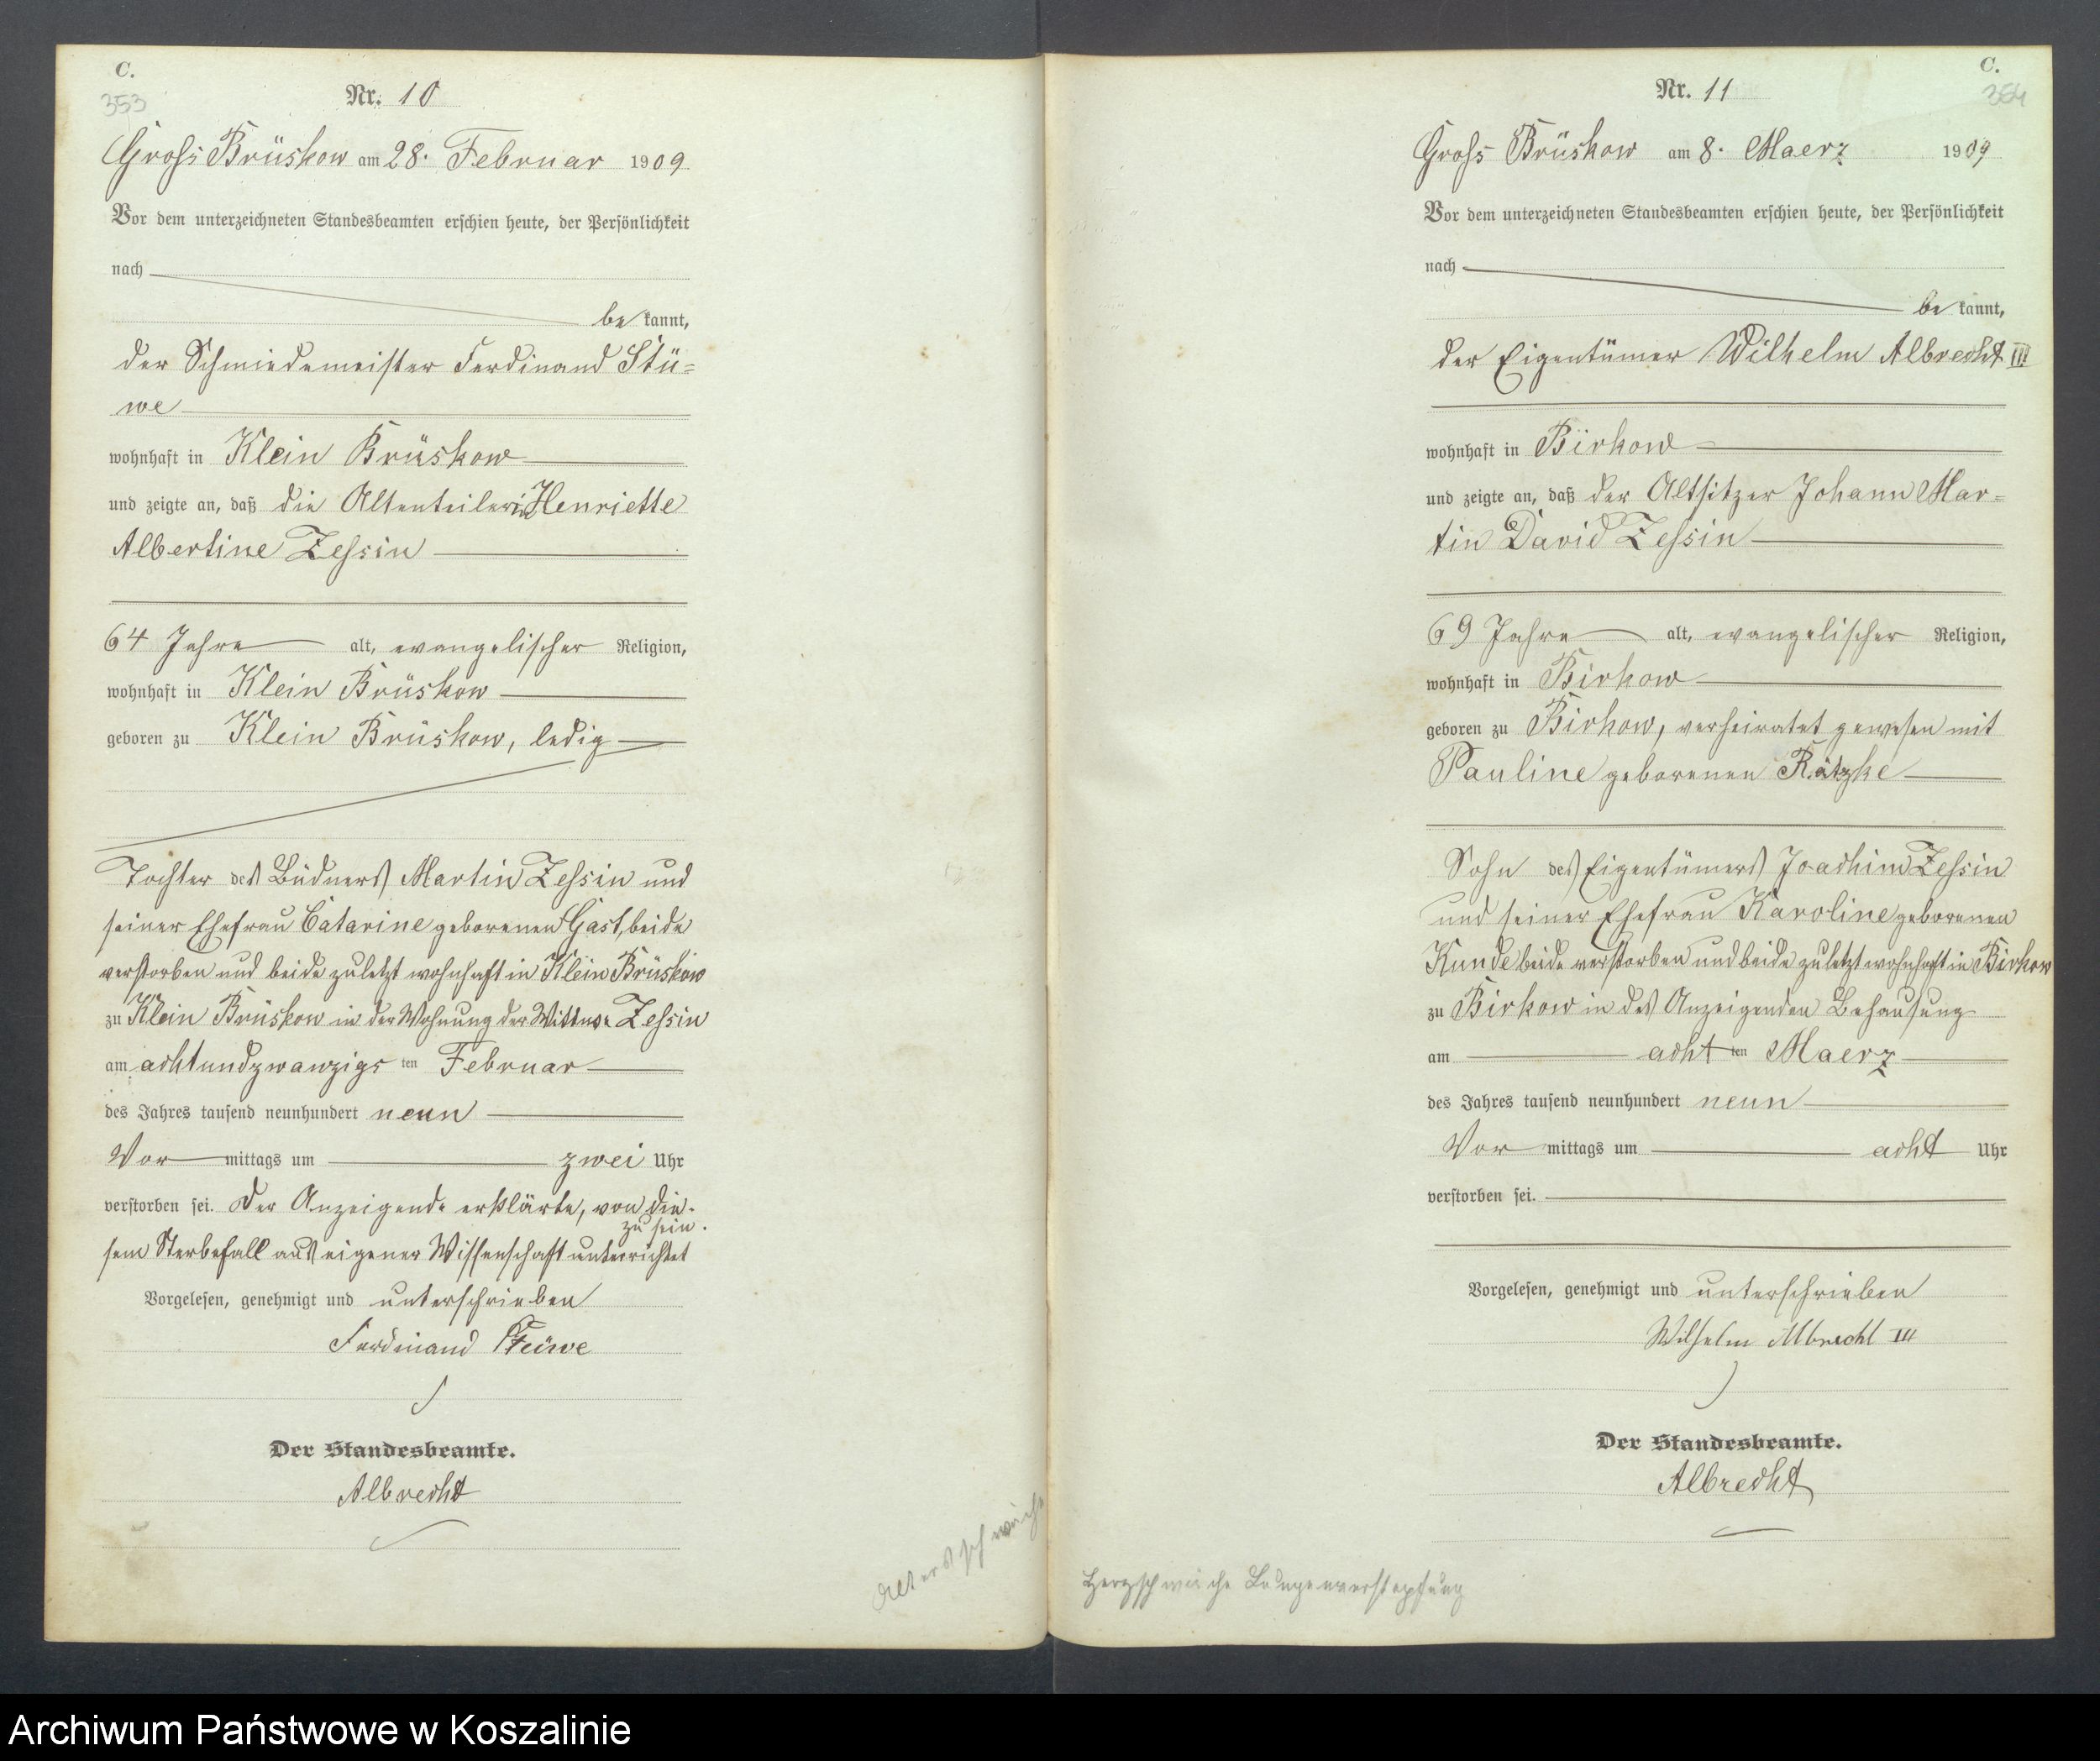 C.
353
Nr. 10
Gross Brüskow am 28. Februar 1909.
Vor dem unterzeichneten Standesbeamten erschien heute, der Persönlichkeit
nach
be kannt,
der Schmiedemeister Ferdinand Stü-
we
wohnhaft in Klein Brüskow
und zeigte an, daß die Altenteilerin Henriette
Albertine Zessin
64 Jahre alt, evangelischer Religion,
wohnhaft in Klein Brüskow
geboren zu Klein Brüskow, ledig
Tochter des Büdners Martin Zessin und
seiner Ehefrau Catarine geborenen Gast, beide
verstorben und beide zuletzt wohnhaft in Klein Brüskow
zu Klein Brüskow in der Wohnung der Wittwe Zessin
am achtundzwanzigs ten Februar
des Jahres tausend neunhundert neun
Vor mittags um zwei Uhr
verstorben sei. Der Anzeigende erklärte, von die-
zu sein.
sem Sterbefall aus eigener Wissenschaft unterrichtet
Vorgelesen, genehmigt und unterschrieben
Ferdinand Stüwe
Der Standesbeamte.
Albrecht
Altersschwäche
C.
354
Nr. 11
Gross Brüskow am 8. Maerz 1909
Vor dem unterzeichneten Standesbeamten erschien heute, der Persönlichkeit
nach
be kannt,
der Eigentümer Wilhelm Albrecht III
wohnhaft in Birkow
und zeigte an, daß der Altsitzer Johann Mar-
tin David Zessin
69 Jahre alt, evangelischer Religion,
wohnhaft in Birkow
geboren zu Birkow, verheiratet gewesen mit
Pauline geborenen Rätzke
Sohn des Eigentümers Joachim Zessin
und seiner Ehefrau Karoline geborenen
Kunde beide verstorben und beide zuletzt wohnhaft in Birkow
zu Birkow in des Anzeigenden Behausung
am acht ten Maerz
des Jahres tausend neunhundert neun
Vor mittags um acht Uhr
verstorben sei.
Vorgelesen, genehmigt und unterschrieben
Wilhelm Albrecht III
Der Standesbeamte.
Albrecht
Herzschwäche Lungenverstopfung
Archiwum Państwowe w Koszalinie